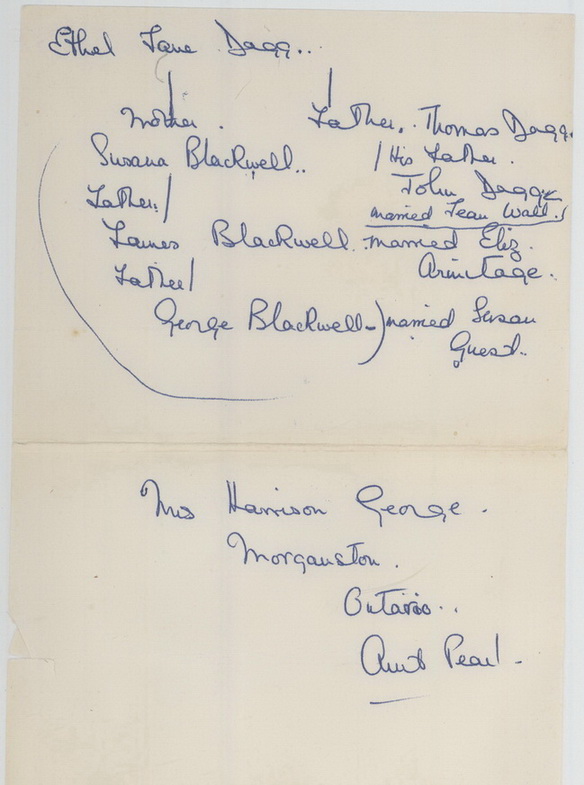 Ethel Jane Dagg..
Mother. Father. Thomas Dagg.
Susana Blackwell.. His Father.
Father: John Dagg
married Jean Wall.
James Blackwell. married Eliz.
Father Armitage.
George Blackwell - married Susan
Guest..
Mrs Harrison George.
Morganston.
Ontario..
Aunt Pearl.